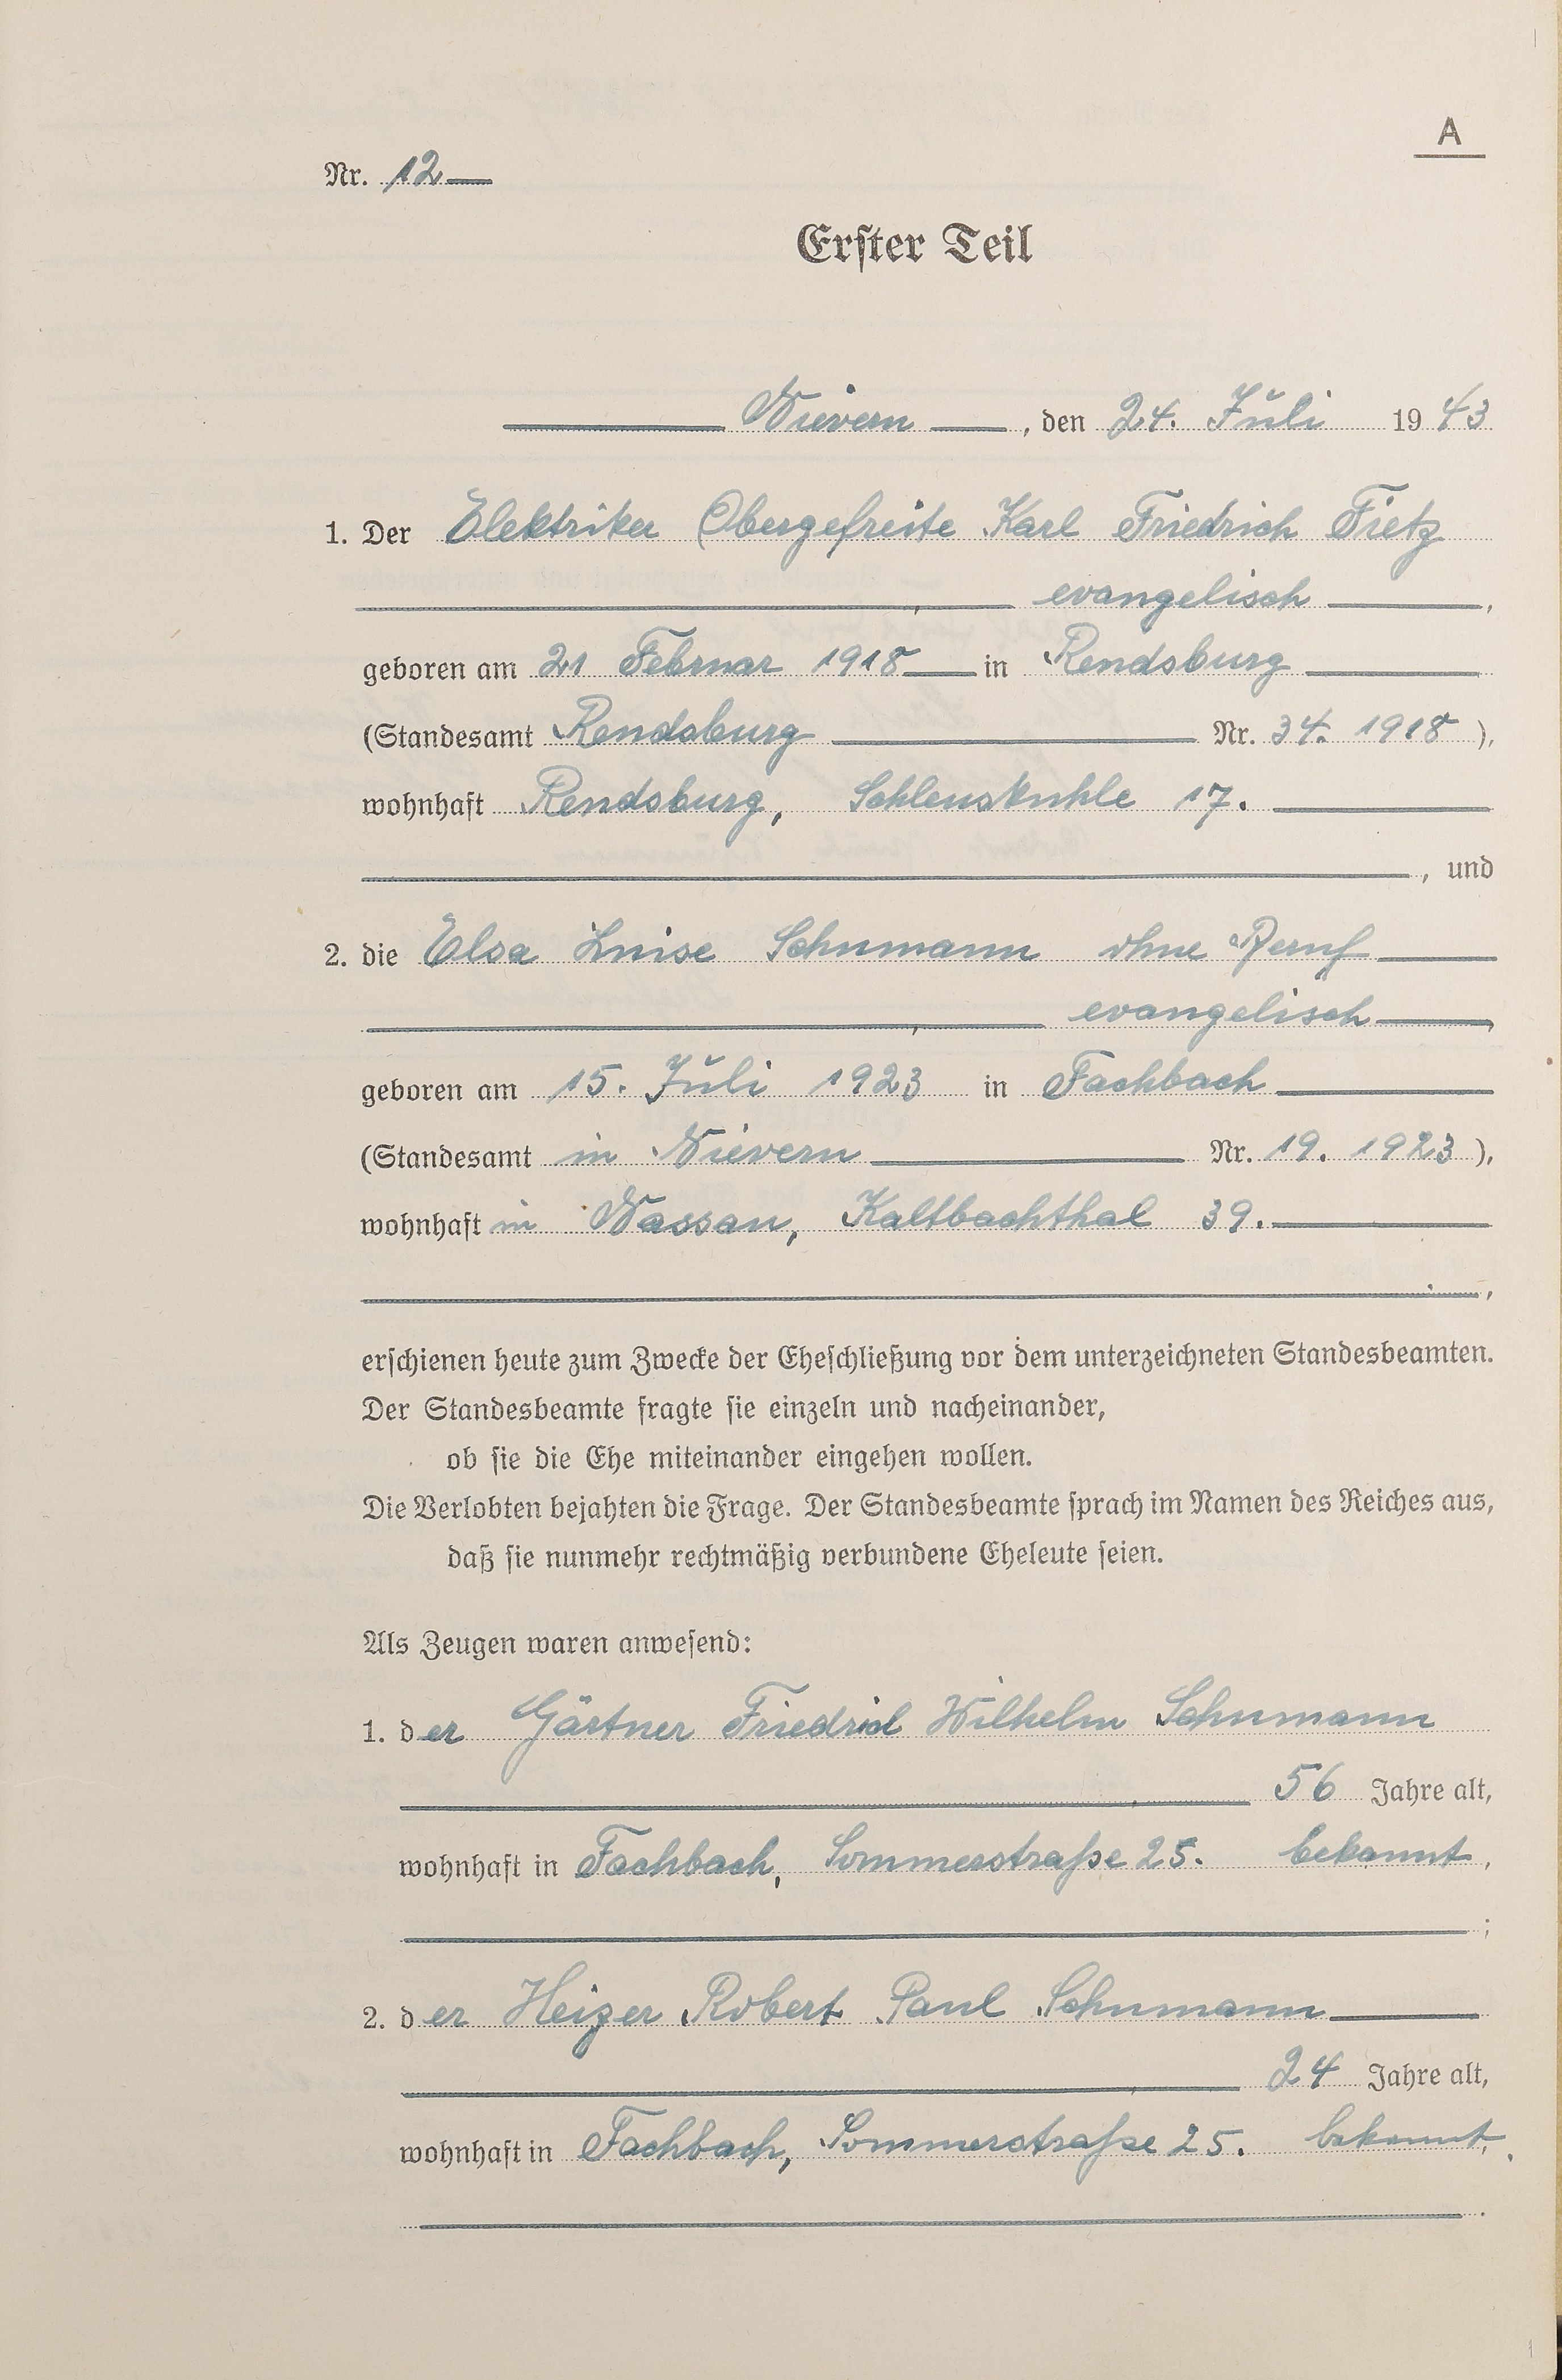 A
Nr. 12
Erster Teil
Nievern, den 24. Juli 1943
1. Der Elektriker Obergefreite Karl Friedrich Fietz
evangelisch,
geboren am 21 Februar 1918 in Rendsburg
(Standesamt Rendsburg Nr. 34. 1918),
wohnhaft Rendsburg, Schleuskuhle 17.
, und
2. die Elsa Luise Schumann ohne Beruf
evangelisch,
geboren am 15. Juli 1923 in Fachbach
(Standesamt in Nievern Nr. 19. 1923),
wohnhaft in Nassau, Kaltbachthal 39.
,
erschienen heute zum Zwecke der Eheschließung vor dem unterzeichneten Standesbeamten.
Der Standesbeamte fragte sie einzeln und nacheinander,
ob sie die Ehe miteinander eingehen wollen.
Die Verlobten bejahten die Frage. Der Standesbeamte sprach im Namen des Reiches aus,
daß sie nunmehr rechtmäßig verbundene Eheleute seien.
Als Zeugen waren anwesend:
1. der Gärtner Friedrich Wilhelm Schumann
56 Jahre alt,
wohnhaft in Fachbach, Sommerstraße 25. bekannt,
;
2. der Heizer Robert Paul Schumann
24 Jahre alt,
wohnhaft in Fachbach, Sommerstraße 25. bekannt.
.